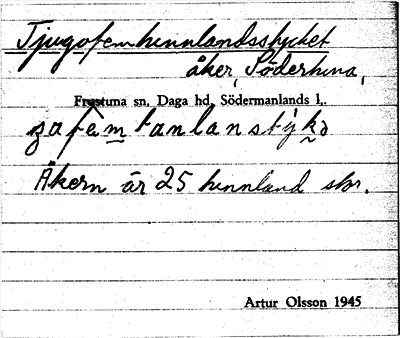 Tjugofemtunnlandsstycket
åker, Södertuna,
Frustuna sn, Daga hd, Södermanlands l.
Åkern är 25 tunnland stor.
Artur Olsson 1945